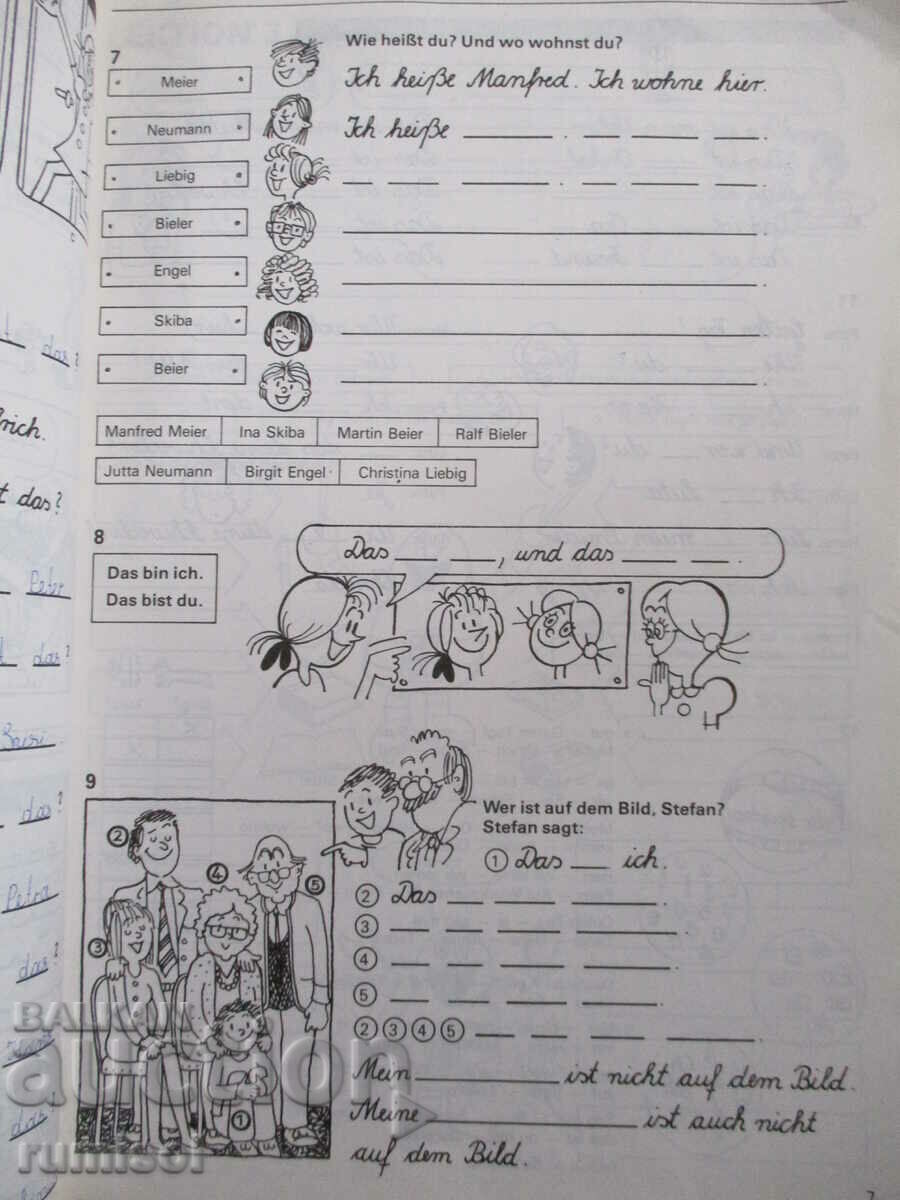 7
Wie heißt du? Und wo wohnst du?
Meier
Ich heiße Manfred. Ich wohne hier.
Neumann
Ich heiße ____ . ____ ____ ____ .
Liebig
Bieler
Engel
Skiba
Beier
Manfred Meier Ina Skiba Martin Beier Ralf Bieler
Jutta Neumann Birgit Engel Christina Liebig
8
Das bin ich.
Das bist du.
Das ____ ____, und das ____ ____.
9
Wer ist auf dem Bild, Stefan?
Stefan sagt:
① Das ____ ich.
② Das ____ ____ ____.
③
④
⑤
② ③ ④ ⑤
Mein ____ ist nicht auf dem Bild.
Meine ____ ist auch nicht
auf dem Bild.
② ④ ⑤ ③ ①
das?
rich.
t das?
Petr
das?
das?
Petra
das?
das?
BALKAN
auction
rumisol
7